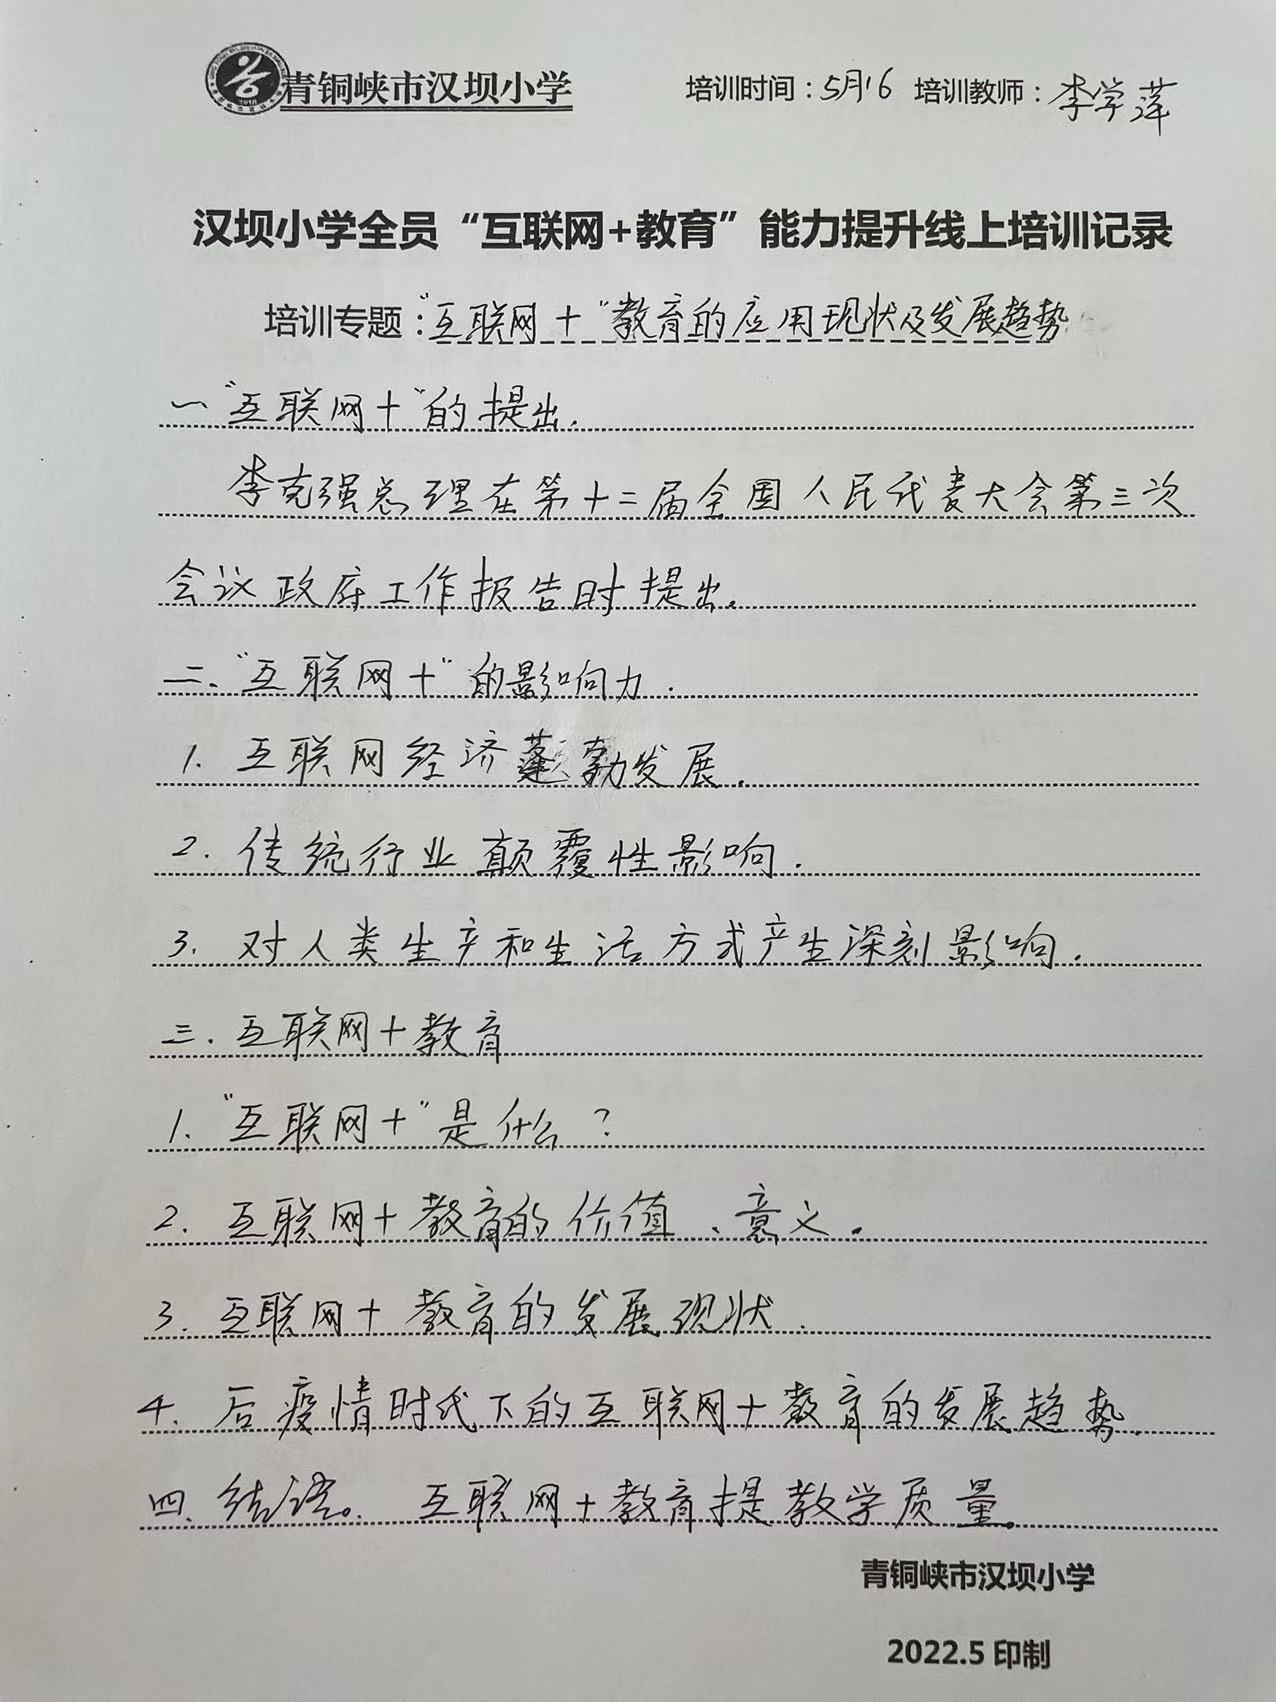 青铜峡市汉坝小学 培训时间：5月16 培训教师：李学萍
汉坝小学全员“互联网+教育”能力提升线上培训记录
培训专题：“互联网+”教育的应用现状及发展趋势
一、“互联网+”的提出.
李克强总理在第十二届全国人民代表大会第三次
会议政府工作报告时提出.
二、“互联网+”的影响力.
1. 互联网经济蓬勃发展.
2. 传统行业颠覆性影响.
3. 对人类生产和生活方式产生深刻影响.
三. 互联网+教育
1. “互联网+”是什么？
2. 互联网+教育的价值、意义。
3. 互联网+教育的发展现状.
4. 后疫情时代下的互联网+教育的发展趋势.
四、结语。 互联网+教育提教学质量。
青铜峡市汉坝小学
2022.5 印制